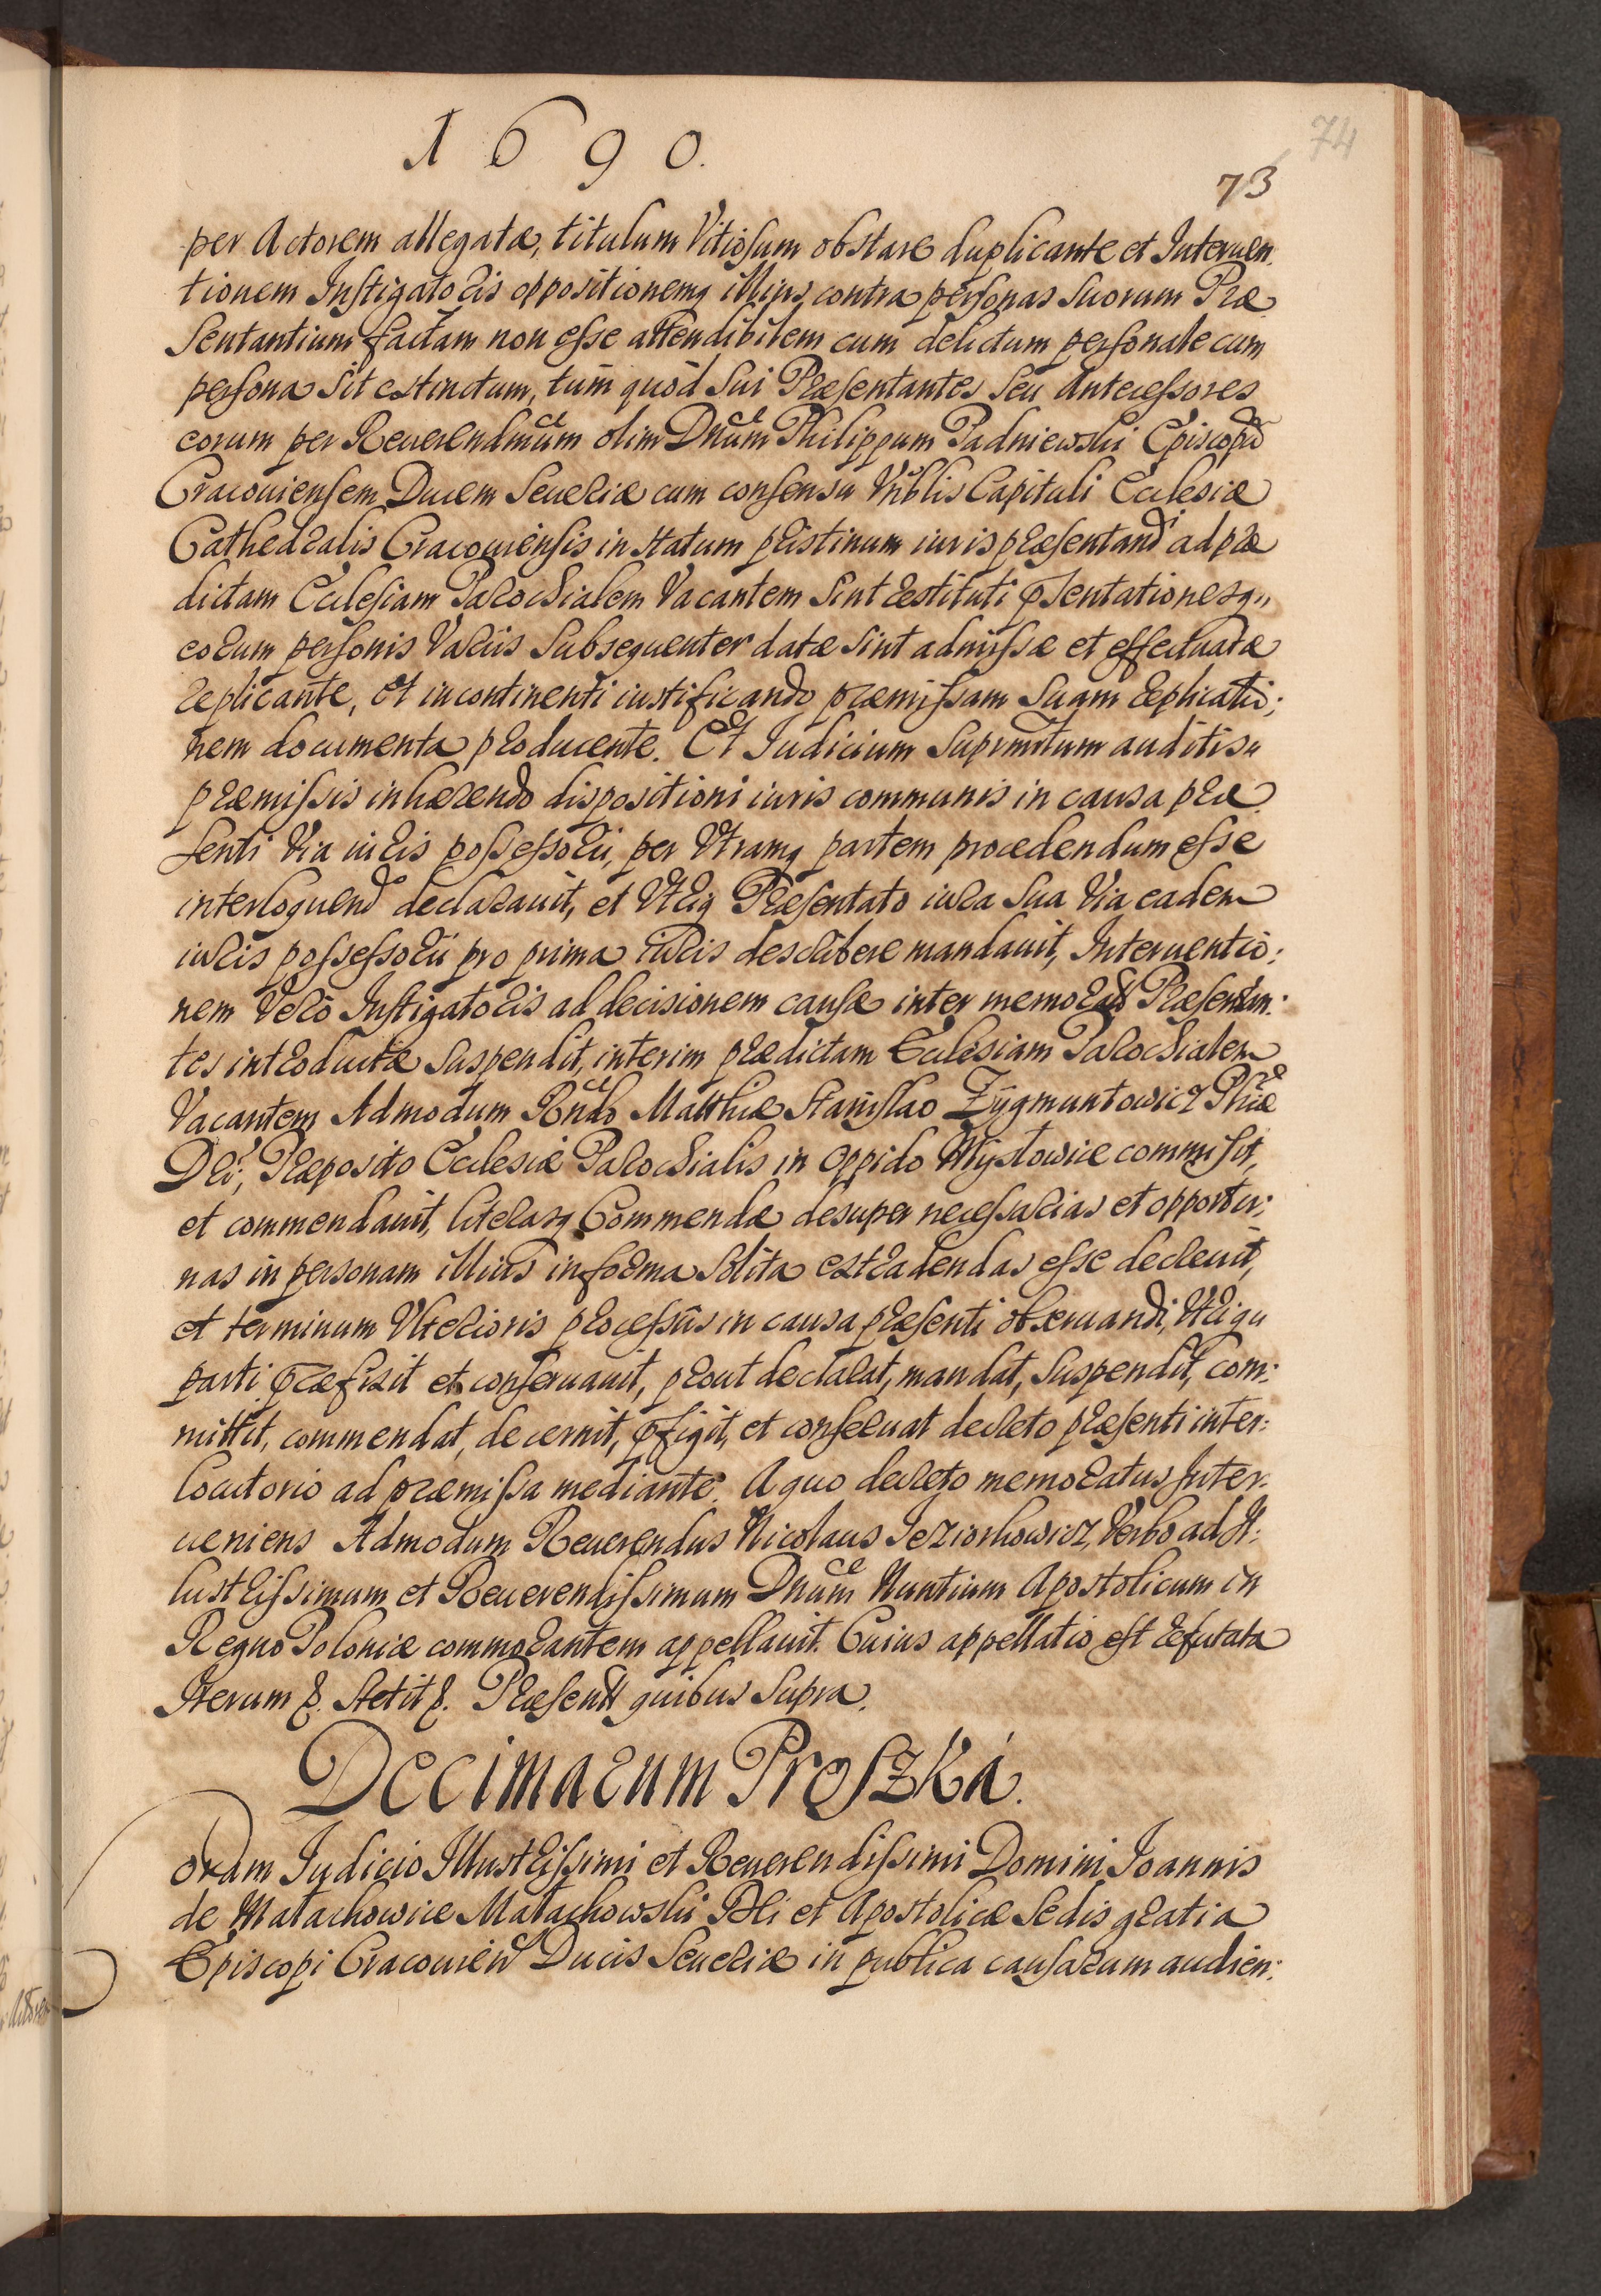 1690.
74
73
per Actorem allegatæ, titulum Vitiosum obstare duplicante et Interuen:
tionem Instigatoris oppositionemq illius contra personas suorum Præ
sentantium factam non esse attendibilem cum delictum personale cum
persona sit extinctum, tum quòd sui Præsentantes seu Antecessores
eorum per Reuerendmum olim Dnum Philippum Padniewski Episcopū
Cracouiensem Ducem Seueriæ cum consensu Vnblis Capituli Ecclesiæ
Cathedralis Cracouiensis in statum pristinum iuris præsentandi ad præ
dictam Ecclesiam Parochialem Vacantem sint restituti pręsentationesq,
eorum personis Varijs subsequenter datæ sint admissæ et effectuatæ
replicante, et incontinenti iustificando præmissam suam replicatio:
nem documenta producente. Et Iudicium suprmtum auditis
præmissis inhærendo dispositioni iuris communis in causa præ
senti Via iuris possessorij, per Vtramq partem procedendum esse
interloquendo declarauit, et Vtriq Præsentato iura sua Via eadem
iuris possessorij pro prima iuris describere mandauit, Interuentio:
nem Verò Instigatoris ad decisionem causæ inter memorat Præsentan:
tes introductæ suspendit, interim prædictam Ecclesiam Parochialem
Vacantem Admodum Rndo Matthiæ Stanislao Zygmuntowicz Phiæ
Dri, Præposito Ecclesiæ Parochialis in oppido Mysłowice commisit,
et commendauit, literasq Commendæ desuper necessarias et opportu:
nas in personam illius in forma solita extradendas esse decreuit,
et terminum Vlterioris processûs in causa præsenti obseruandi, Vtriqu
parti præfixit et conseruauit, prout declarat, mandat, suspendit, com:
mittit, commendat, decernit, pręfigit, et conseruat decreto præsenti inter:
locutorio ad præmissa mediante. A quo decreto memoratus Inter:
ueniens Admodum Reuerendus Nicolaus Jeziorkowicz, Verbo ad Il:
lustrissimum et Reuerendissimum Dnum Nuntium Apostolicum in
Regno Poloniæ commorantem appellauit. Cuius appellatio est refutata
Iterum &. stetit &. Præsentt quibus supra.
Decimarum Proszka.
Coram Iudicio Illustrissimi et Reuerendissimi Domini Ioannis
de Małachowice Małachowski Dei et Apostolicæ Sedis gratia
Episcopi Cracouien Ducis Seueriæ in publica causarum audien: